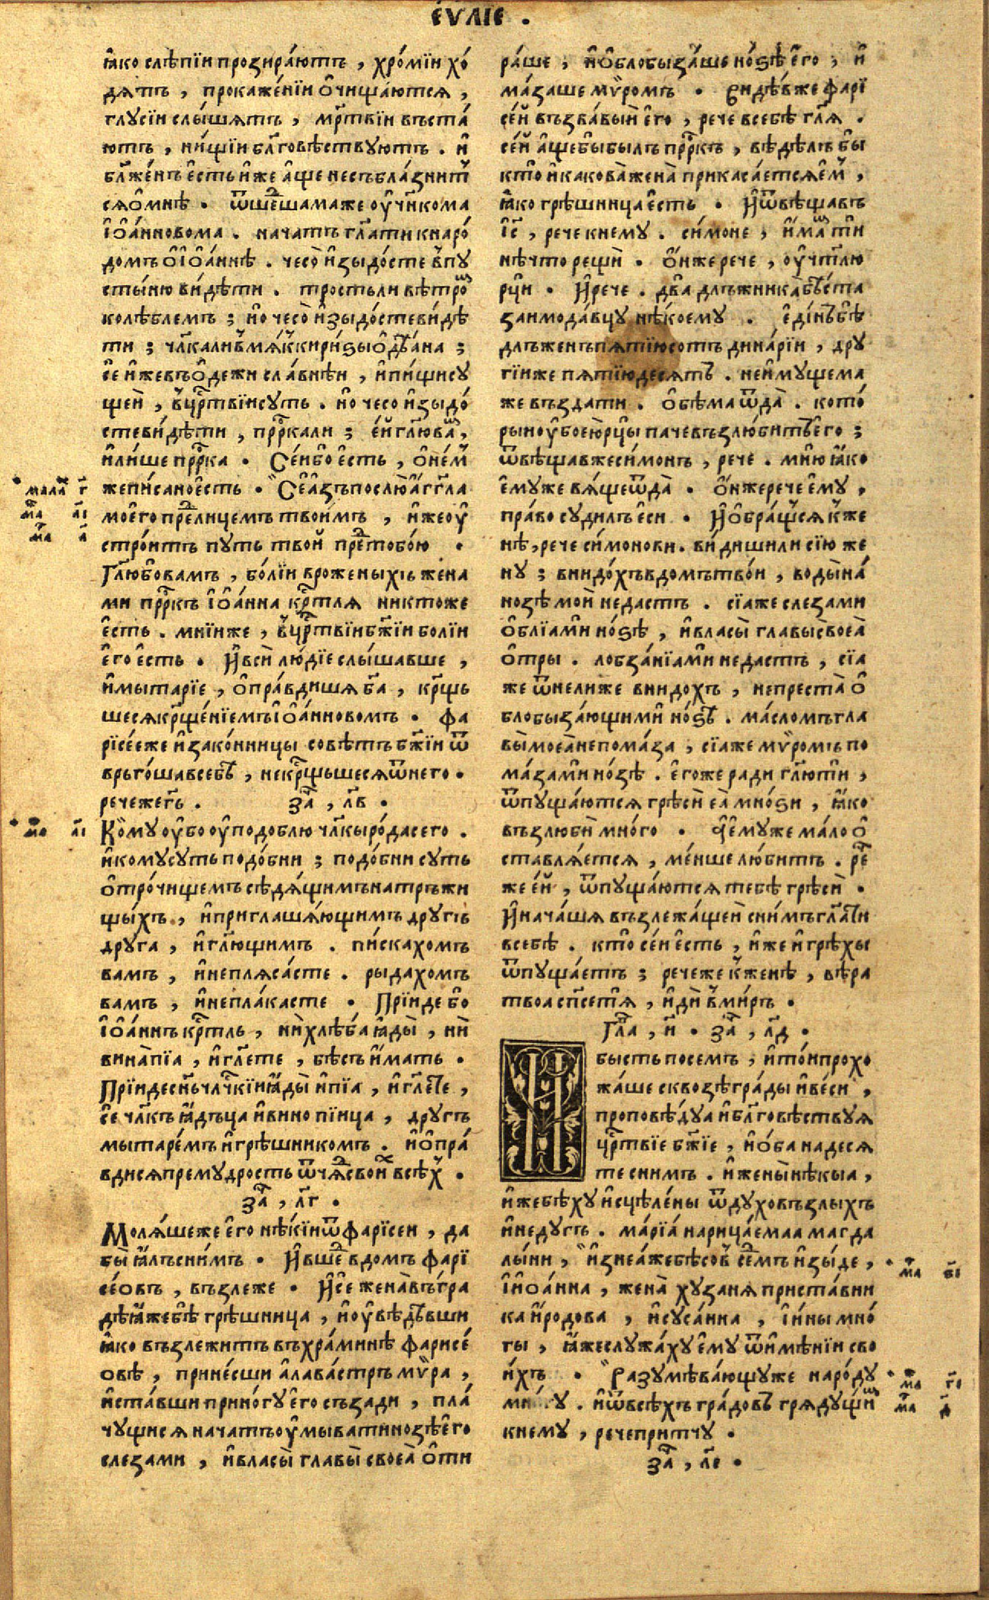 еѵⷢ҇лїе .
ꙗко слѣпїи прозира́ютъ , хро́мїи хо́
дѧтъ , прокаже́нїи ѻ҆чища́ются ,
глусїи слы́шятъ , мр҃твїи въста́
ютъ , ни́щїи бл҃говѣствуютъ . и҆
бл҃же́нъ є҆сть и҆же а҆ще несъбла́знит
сяѻ҆мнѣ . ѿше́шамаже оу҆чн҃кома
і҆ѻа́нновома . нача́тъ гл҃ати кнаро́
домъ ѻ҆ і҆ѻа́ннѣ . чесо̀ и҆зыдо́сте впу
сты́ню ви́дѣти . тро́стьли вѣтро
колѣблемъ ; но чесо̀ и҆зыдо́стеви́дѣ
ти ; чл҃калив мя́ккири́зы ѻ҆дѣ́ана ;
се и҆жевъѻде́жи сла́внѣи , и҆пи́щису
щеи , вцр҃твїису́ть . но чесо и҆зыдо́
стеви́дѣти , прⷪ҇ркали ; е҆й гл҃ювам ,
и҆ли́ше прⷪ҇рка . Се́ибо е҆сть , ѻ҆не́м
жепи́саное҆сть . Се а҆зъ послю̀ а҆́гг҃ла
моего̀ прелице́мъ твои́мъ , и҆жеоу҆
стро́итъ путь твой претобо́ю .
Гл҃юбовамъ , бо́лїи врожены́хъ жена
ми прⷪ҇ркъ і҆ѻа́нна кр҃тля никто́же
е҆сть . мнїиже , вцр҃твїи бж҃їи болїи
е҆го є҆сть . И҆вси̑ лю́дїе слы́шавше ,
и҆мытарїе , ѻ҆пра́вдишя б҃а , кр҃щь
шеся кр҃ще́нїемъ і҆ѻа́нновомъ . фа
рїсе́еже и҆зако́нницы совѣтъ бж҃їи ѿ
врьго́шавсебѣ , некр҃щьшеся ѿнего̀ .
речежегь . за҃ , л҃в .
Кому оу҆бо оу҆подоблю чл҃кы ро́дасего .
и҆кому̀суть подо́бни ; подо́бни суть
ѻ҆тро́чищемъ сѣдя́щимъ натръжи
щыхъ , и҆приглаша́ющимъ другъ
друга , и҆гл҃ющимъ . писка́хомъ
вамъ , и҆непляса́сте . рыда́хомъ
вамъ , и҆непла́касте . Прїиде бо
і҆ѻа́ннъ кр҃тль , ни хлѣба ꙗды́ , ни
вина̀пїа , и҆гл҃ете , бѣсъ и҆мать .
Прїидесн҃ъ чл҃чкїи ꙗды̀ и҆пїа , и҆гл҃ете ,
се чл҃къ ꙗдъца и҆вино пїица , другъ
мытаре́мъ и҆грѣшникомъ . и҆ѻ҆пра́
вдися прему́дрость ѿчя́дсвои́х всѣх .
за҃ , л҃г .
Моля́шеже є҆го нѣкїи ѿ фарїсеи , да
бы ꙗлъсни́мъ . И҆вше́ вдомъ фарї
се́овъ , възлеже . И҆се жена̀ въгра
дѣ ꙗ́жебѣ грѣшница , и҆оувѣдѣвши
ꙗко възлежи́тъ въхра́минѣ фарисе́
овѣ , прине́сши а҆лава́стръ мѵ́ра ,
и҆ста́вши приногу̀ е҆го съза́ди , пла́
чущися нача́тъ оу҆мыва́ти но́зѣ е҆го
слеза́ми , и҆власы̀ главы̀ своеа̀ ѻ҆ти
ра́ше , и҆ѻблобыза́ше но́ѕѣ е҆го , и҆
ма́заше мѵ́ромъ . Видѣ́вже фарї
се́й възва́вый е҆го , рече всебѣ гл҃я .
се́й а҆ще бы бы́лъ прⷪ҇ркъ , вѣ́дѣлъ бы
кто и҆ какова̀ жена̀ прикаса́ется е҆м ,
ꙗко грѣшница є҆сть . И҆ѿвѣща́въ
і҆с҃ , рече кнему . си́моне , и҆мамти
нѣчто рещи̑ . ѻ҆ниже рече , оу҆чтлю
рцы . И҆рече . два длъжника̀ бѣста
заимода́вцу нѣкоему . е҆ди́нъ бѣ
длъженъ пятїюсотъ дина́рїи , дру
гїиже пятїюдеся́тъ . неи҆му́щема
же възда́ти . ѻ҆бѣма ѿда̀ . кото́
рыи оу҆бо ею̀ рцы па́че възлюбитъ е҆го ;
ѿвѣща́вже си́монъ , рече . мню̀ ꙗко
е҆муже вя́ще ѿда̀ . ѻ҆нже рече е҆му ,
пра́во судилъ е҆си . И҆ѻбра́щся кже
нѣ , рече си́монови . ви́диши ли сїю же
ну ; внидо́хъ вдомъ тво́и , воды на́
нозѣ мои́ недастъ . сїаже слеза́ми
ѻ҆блїами но́ѕѣ , и҆власы̀ главы своеа̀
ѻ҆тры . лобза́нїами недастъ , сїа
же ѿнели́же внидо́хъ , непреста̀ ѻ҆
блобыза́ющими но́ѕѣ . ма́сломъ гла
вы̀ моеа̀ непома́за , сїаже мѵ́ромъ по
ма́зами но́зѣ . е҆го́же ради гл҃юти ,
ѿпуща́ются грѣси̑ еа̀ мно́ѕи , ꙗко
възлюби̑ мно́го . є҆му́же мало ѻ҆
ставля́ется , ме́нше лю́битъ . ре
же е҆й , ѿпуща́ются тебѣ грѣси̑ .
И҆нача́шя възлежа́щеи сни́мъ гл҃ати
всебѣ . кто̀ се́и є҆сть , и҆же и҆ грѣхы
ѿпуща́етъ ; рече же кже́нѣ , вѣра
твоа сп҃сетя , и҆ди̑ вми́ръ .
Гла҃ , и҃ . за҃ , л҃д .
И
бысть посемъ , и҆то́и прохо
жа́ше сквозѣ гра́ды и҆ве́си ,
проповѣ́дуа и҆бл҃говѣствуя
цр҃твїе бж҃їе , и҆ѻба надеся
те сни́мъ . и҆жены̀ нѣкыа ,
и҆жебѣху и҆сцѣле́ны ѿдуховъ злы́хъ
и҆неду́гъ . марїа́ нарица́емаа магда
лы́ни , и҆знеа́же бѣсов се́дмъ и҆зы́де ,
і҆ і҆ѻа́нна , жена̀ хуза́ня приста́вни
ка и҆родова , и҆суса́нна , і҆ины мно́
гы , ꙗжеслужа́ху е҆му ѿ и҆мѣ́нїи сво
и́хъ . Разумѣва́ющуже наро́ду
мно́гу . и҆ѿвсѣхъ гра́довъ гряду́щим
кнему , рече при́тчу .
за҃ , л҃е .
мала г҃
ма а҃і
ма а҃
мѳ а҃і
ма в҃і
ма г҃і
ма д҃